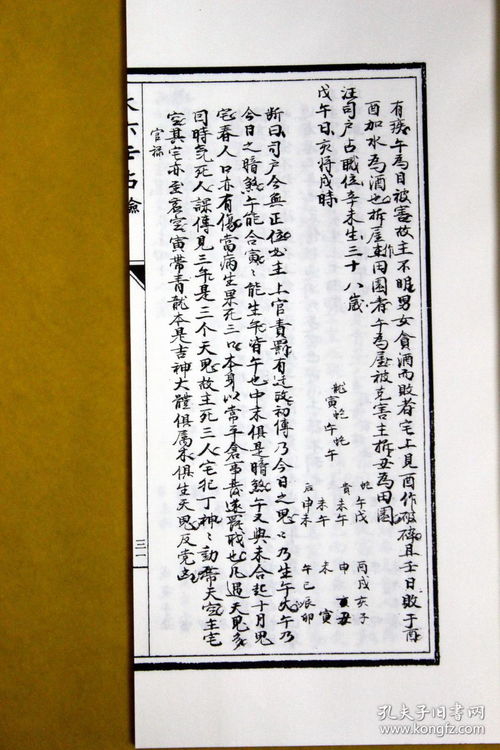 有疾午為目被害故主不明男女貪酒而敗者宅上見酉作破碎且壬日敗于酉
酉加水為酒也拆屋作東田園者午為屋被克害主拆丑為田園
汪司户占職位辛未生三十八歲
戊午日亥將戌時
龍寅蛇午蛇午
蛇午戊
貴未午
未午
后申未
丙戌亥子
申 亥丑
未 寅
午巳辰卯
断曰司户今無正位必主上官責罰有迁改初傳乃今日之鬼鬼乃生午火午乃
今日之暗煞午能合寅寅能生午皆午也中末俱是暗煞午又與未合起十月鬼
宅春人口亦有傷當病生果死三以本身以常平倉事發遂罷職也凡遇天鬼多
同時死人課傳見三午是三个天鬼故主死三人宅犯丁神神動帶天空主宅
空其宅亦至空寅帶青龍本是吉神大體俱屬未俱生天鬼反党
官祿
大六壬占驗
三一
孔夫子旧书网
kongfz.com